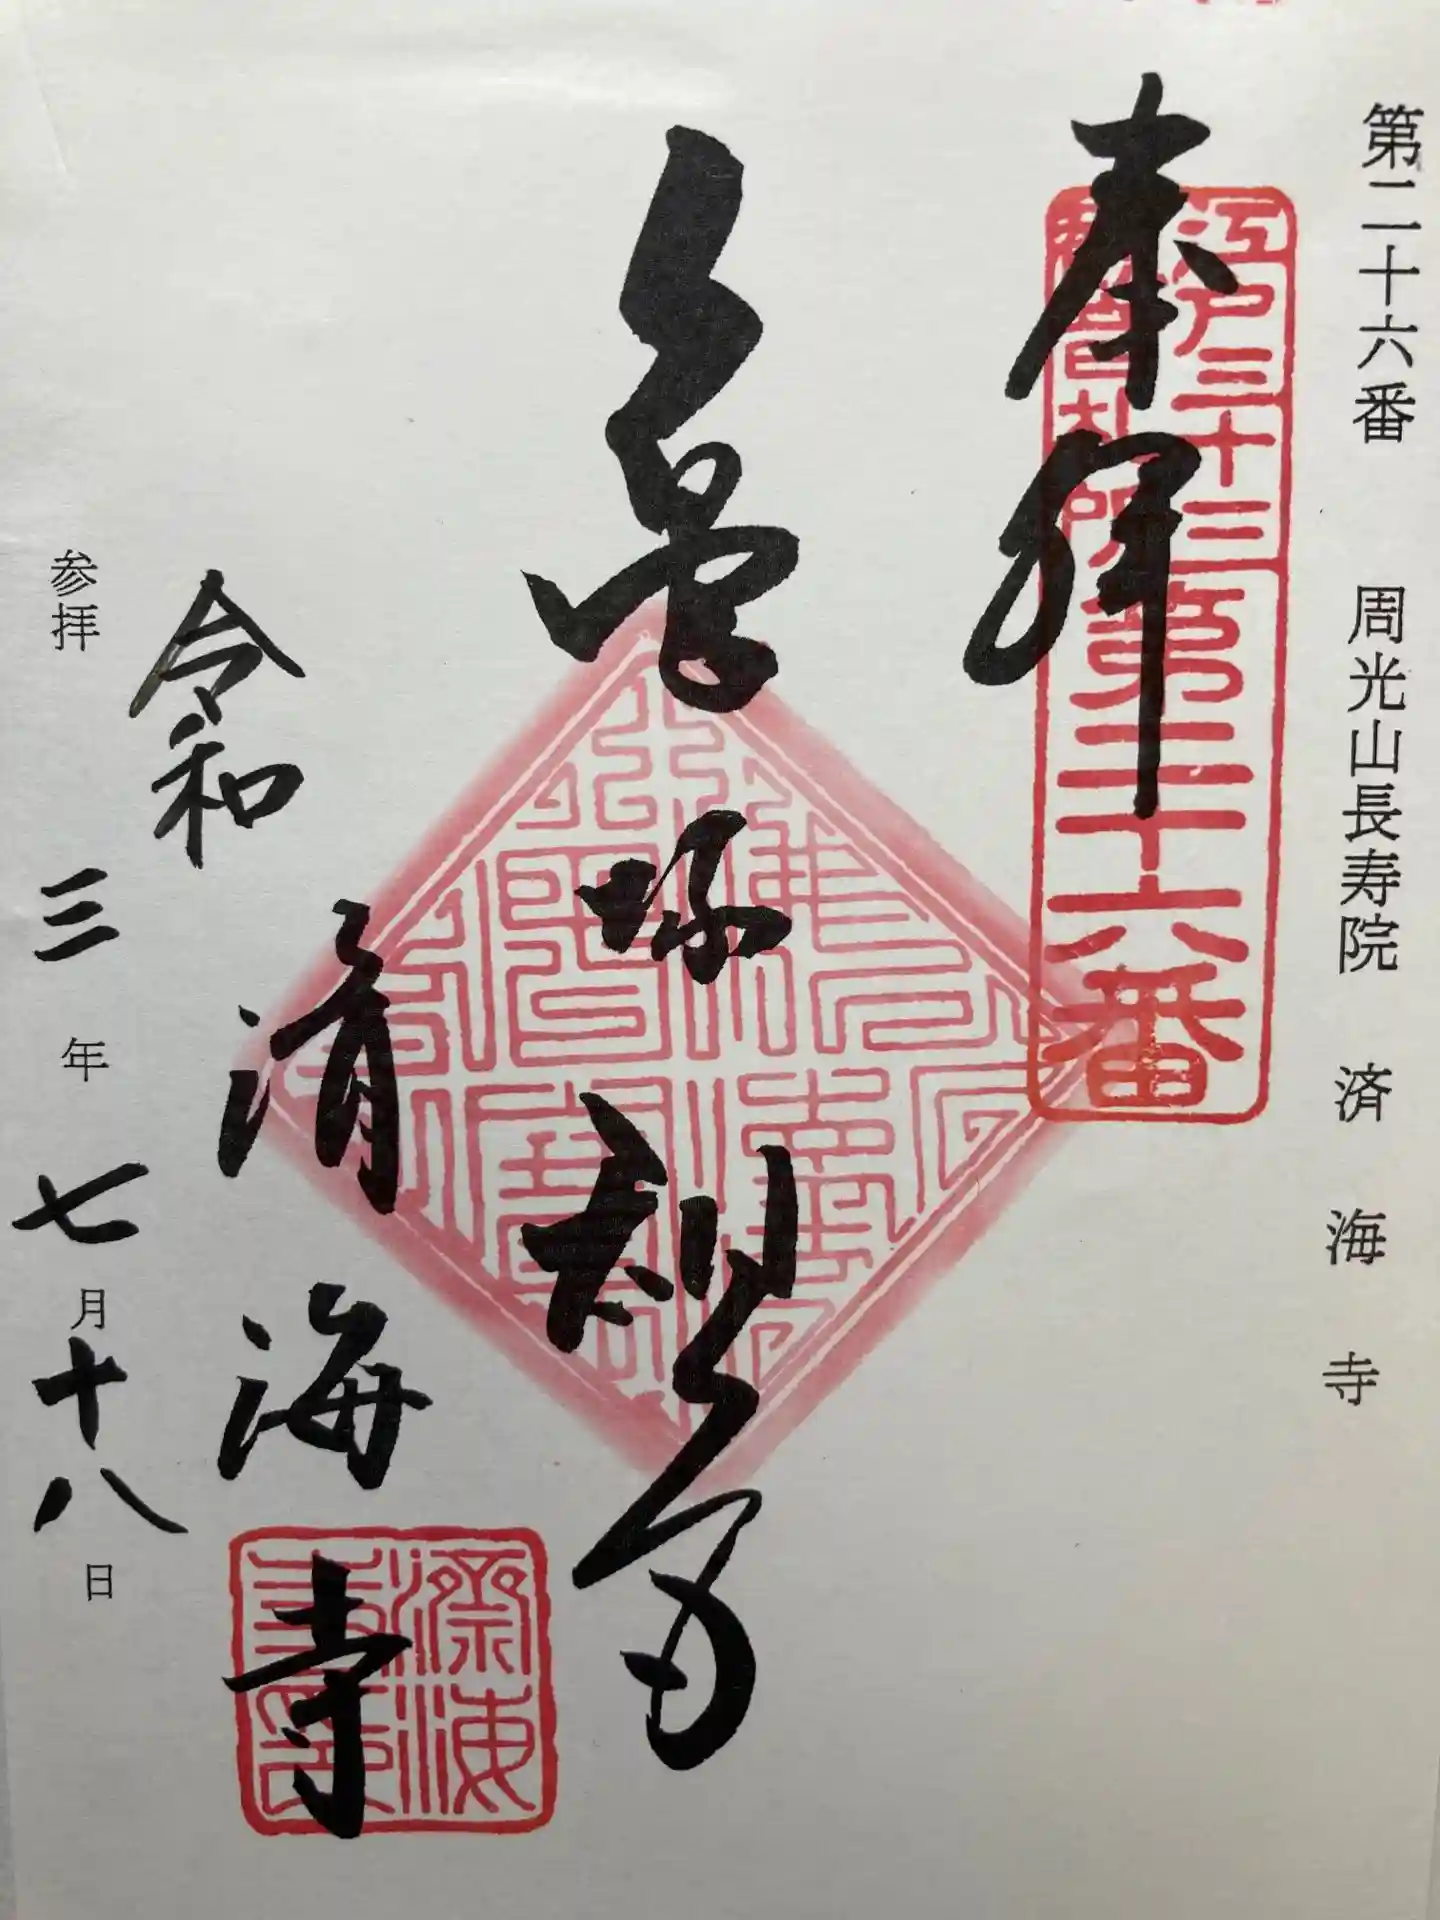 第二十六番 周光山長寿院 済海寺
奉拝
江戸三十三
観音札所
第二十六番
亀塚観音
佛法僧寶
済海寺
濟海
寺印
令和
参拝 三年七月十八日